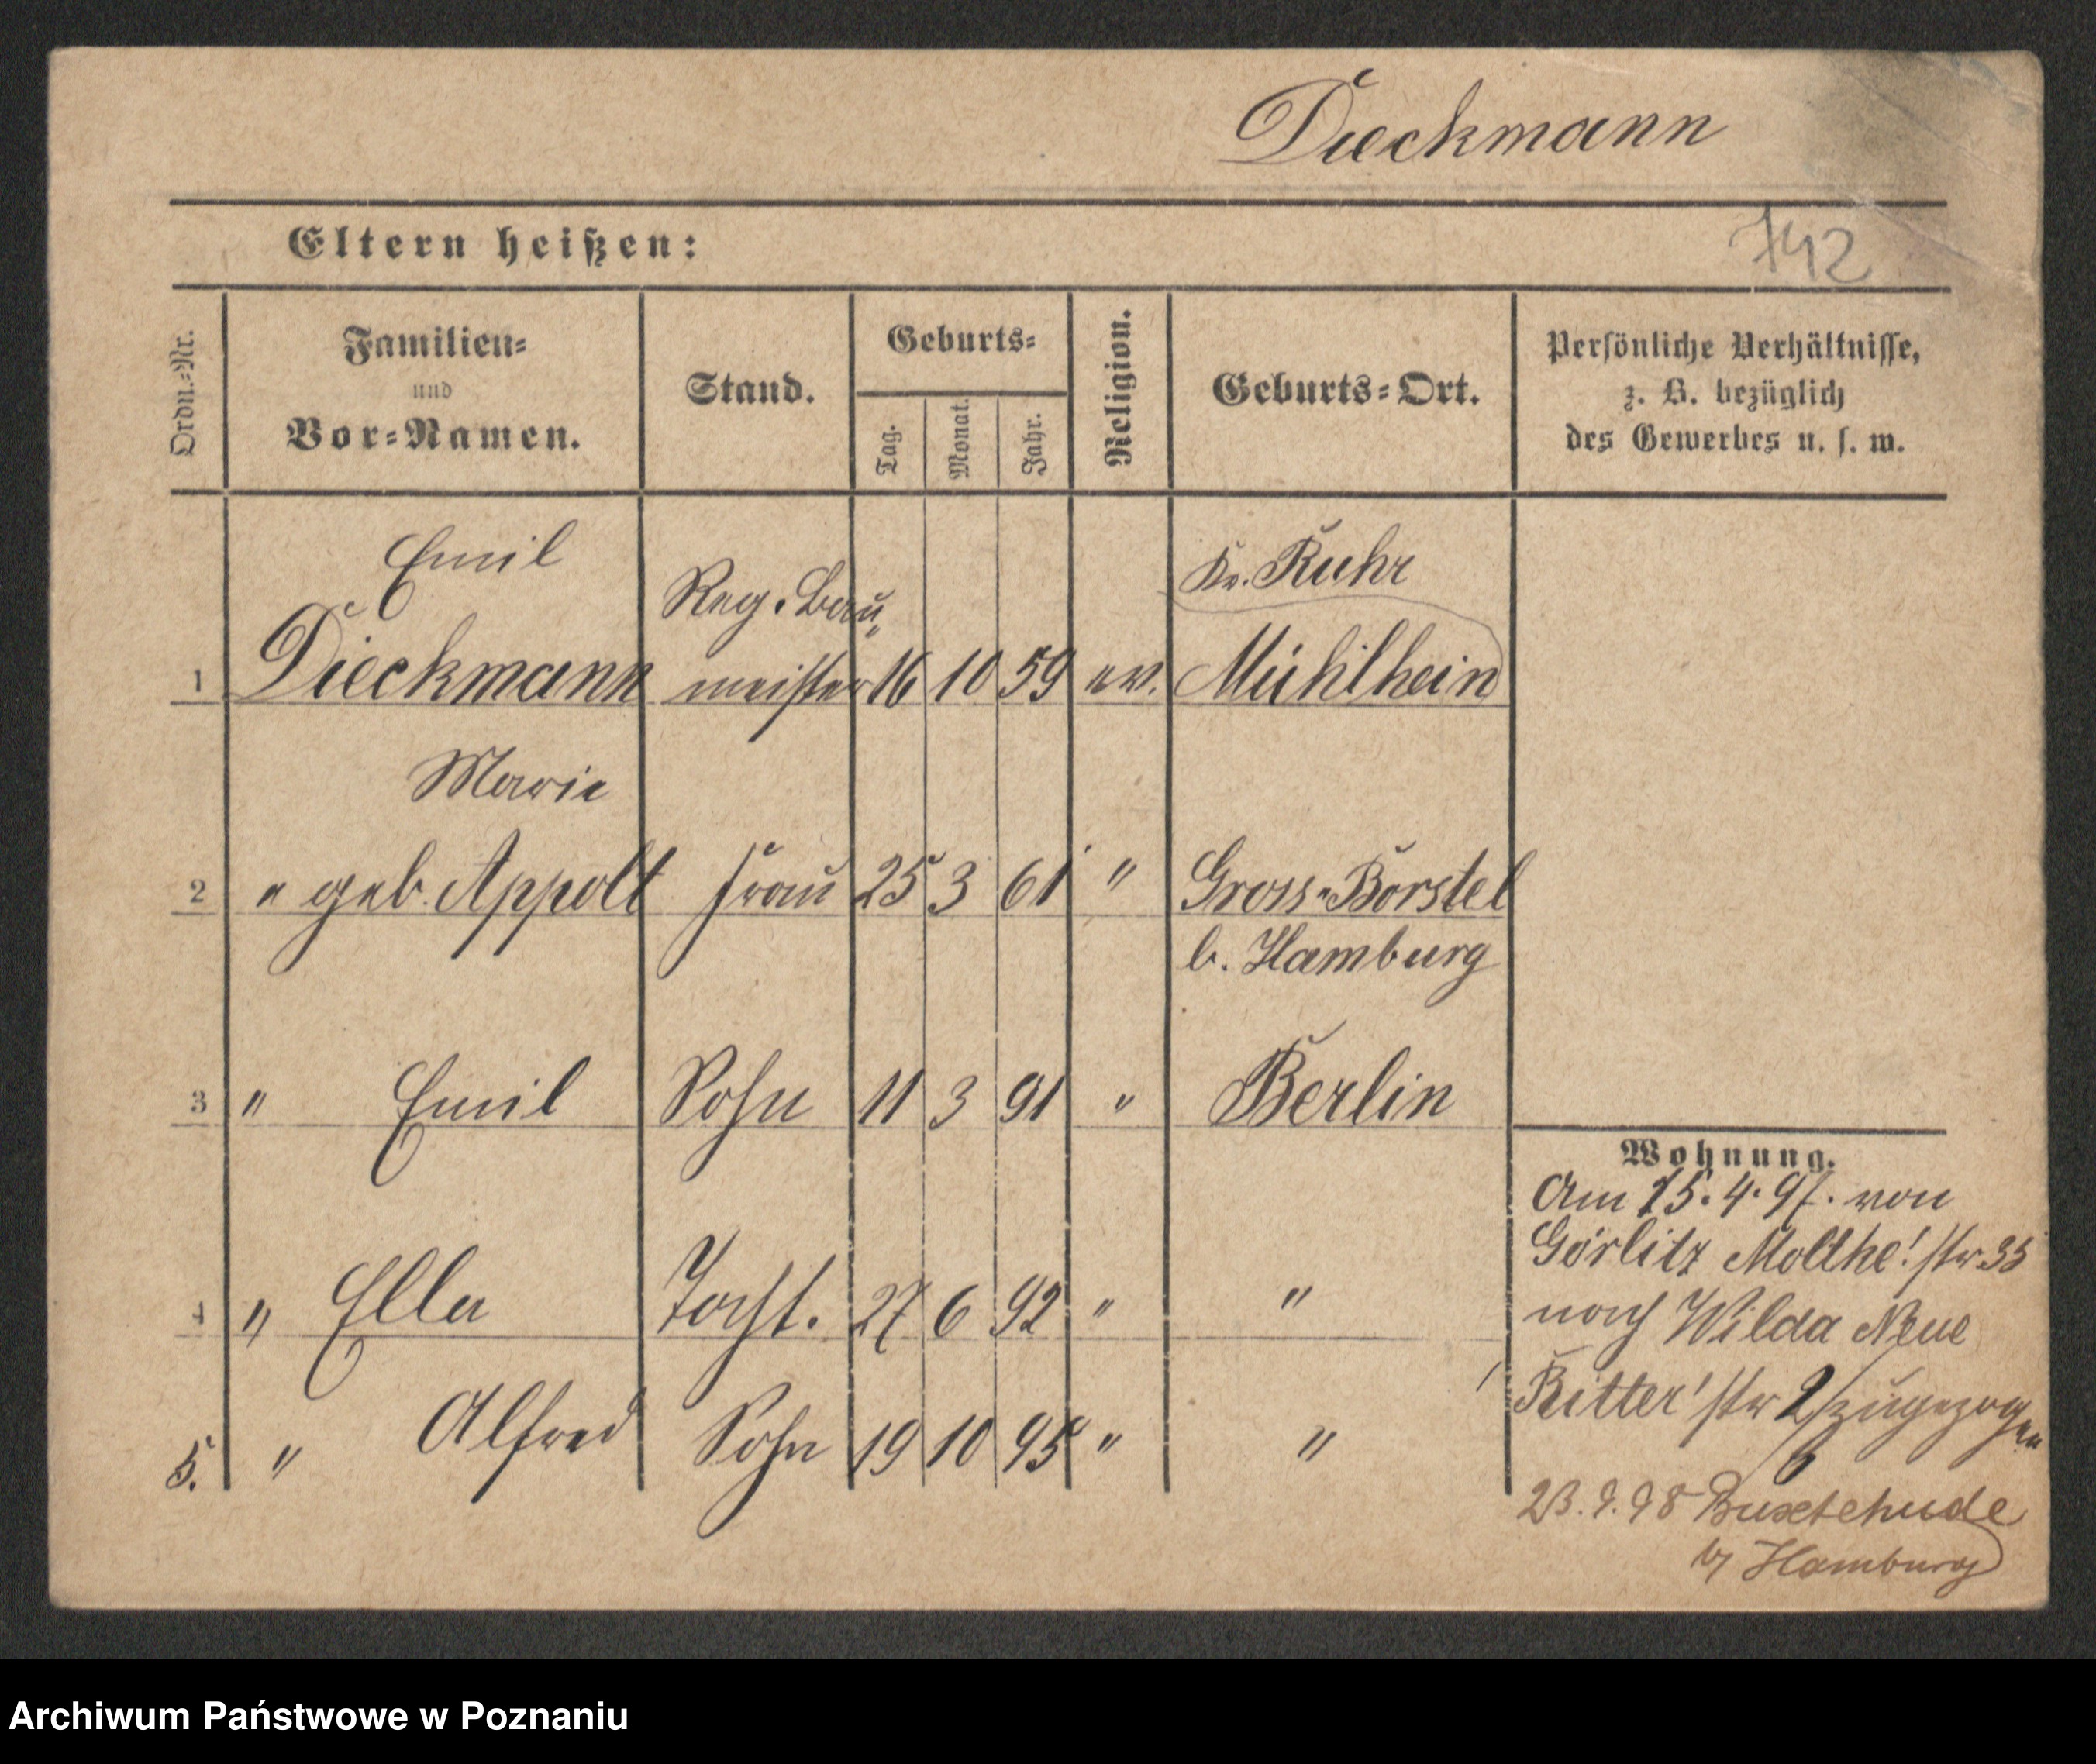 Dieckmann
Eltern heißen:
742
Ordn.-Nr.
Familien-
und
Vor-Namen.
Stand.
Geburts-
Tag.
Monat.
Jahr.
Religion.
Geburts-Ort.
Persönliche Verhältnisse,
z. B. bezüglich
des Gewerbes u. s. w.
Emil
Reg. Bau„
Kr. Ruhr
1 Dieckmann meister 16 10 59 ev. Mühlhein
Marie
2 " geb. Appolt Frau 25 3 61 " Gross-Borstel
b. Hamburg
3 " Emil Sohn 11 3 91 " Berlin
4 " Ella Tocht. 27 6 92 " "
5. " Alfred Sohn 19 10 95 " "
Wohnung.
Am 15. 4. 97. von
Görlitz Moltke! str 35
nach Wilda Neue
Ritter! str 2/6 zugezogen
23. 9. 98 Buxtehude
b/ Hamburg
Archiwum Państwowe w Poznaniu